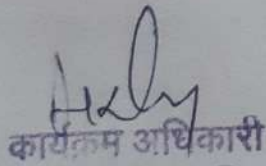 कार्यक्रम अधिकारी